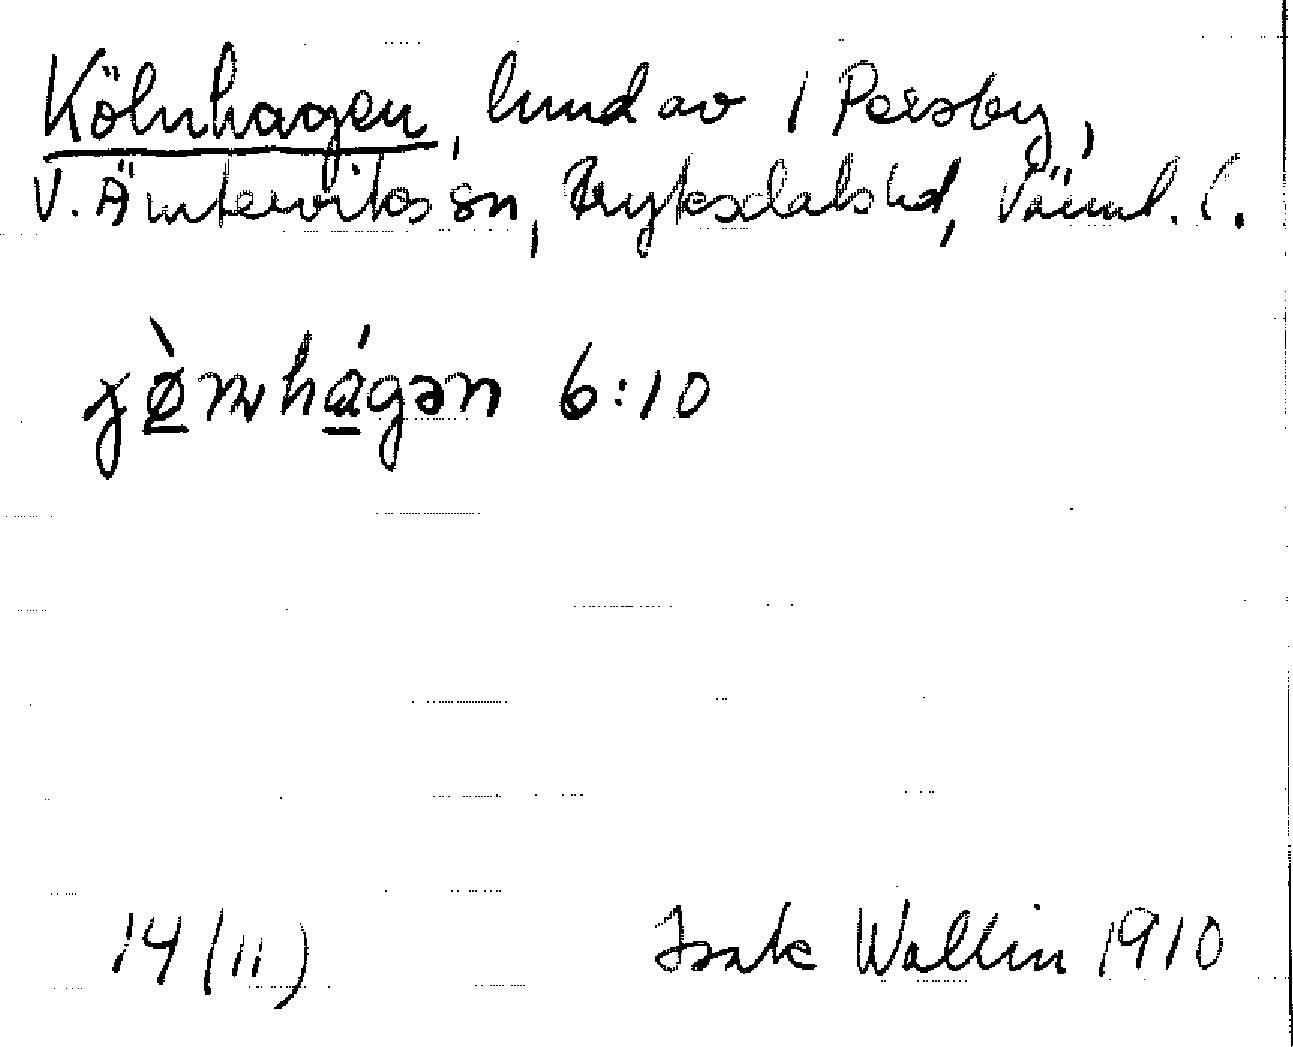 Kölnhagen, lund av / Persby,
V. Ämterviks sn, Fryksdals hd, Värml. l.
hágən 6:10
14 (11)
Isak Wallin 1910